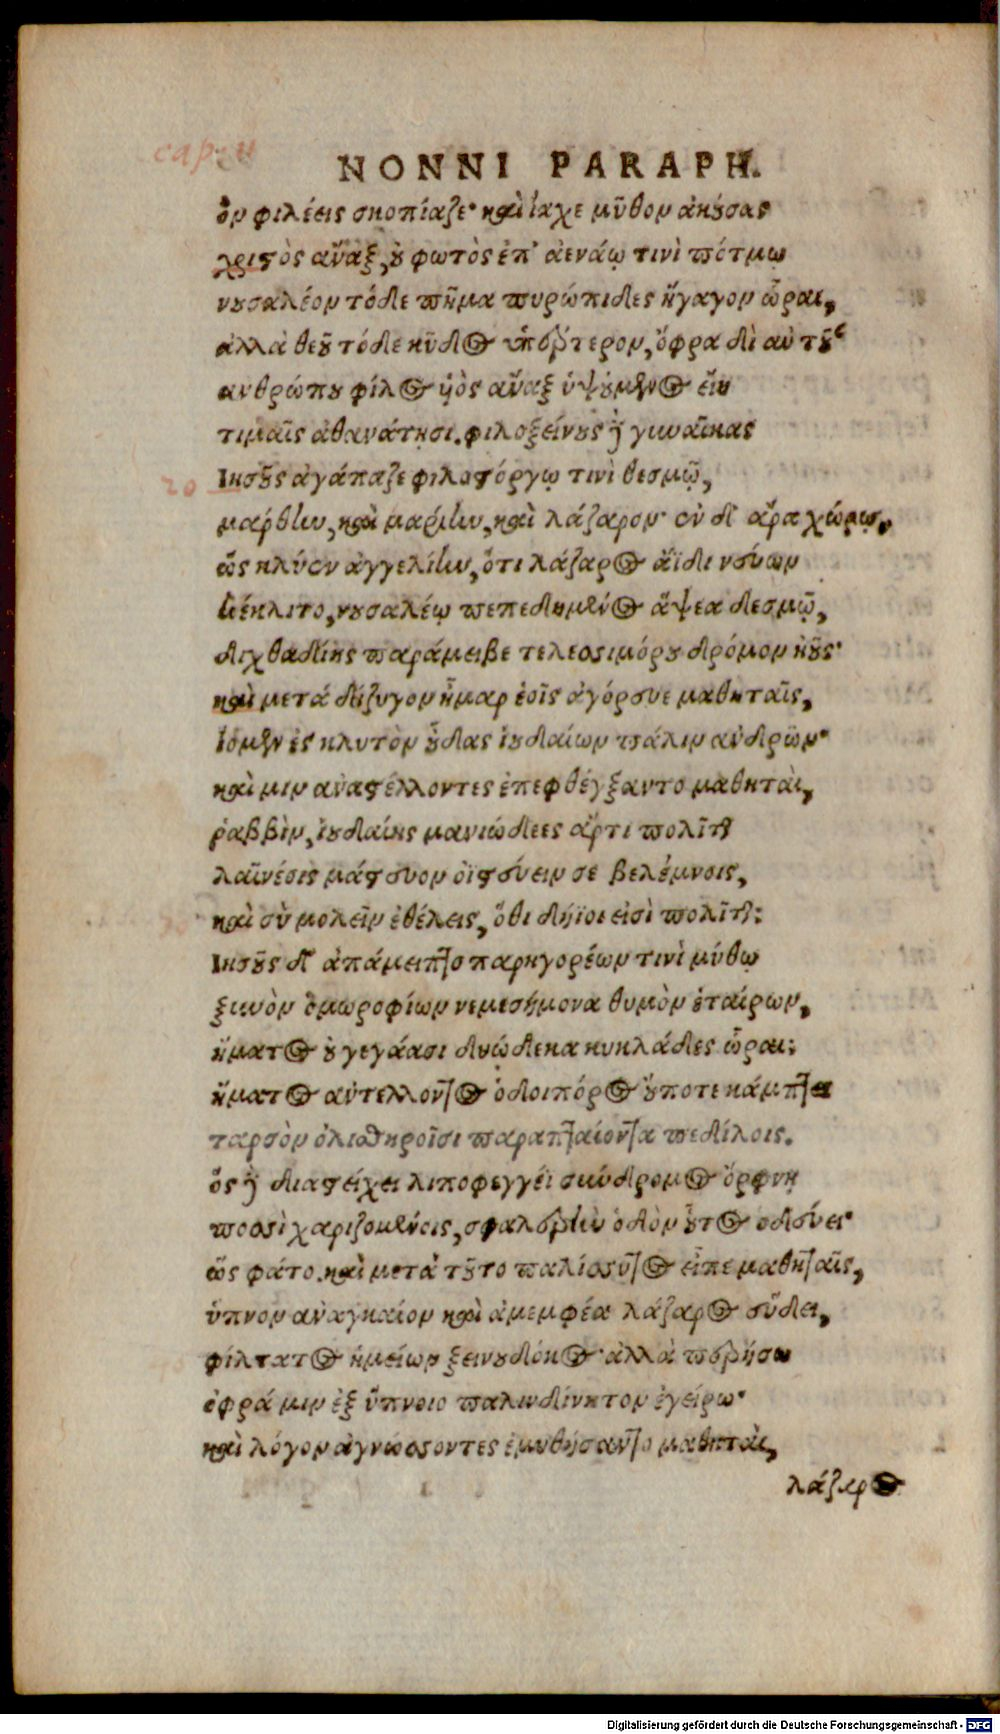 cap. 11
NONNI PARAPH.
ὃν φιλέεις σκοπίαζε· καὶ ἴαχε μῦθον ἀκούσας
χριστὸς ἄναξ, οὐ φωτὸς ἐπ' ἀενάῳ τινὶ πότμῳ
νουσαλέον τόδε πῆμα πυρώπιδες ἤγαγον ὧραι,
ἀλλὰ θεοῦ τόδε κῦδος ὑπέρτερον, ὄφρα δι αὐτοῦ
ἀνθρώπου φίλος υἱὸς ἄναξ ὑψούμενος εἴη
τιμαῖς ἀθανάτῃσι. φιλοξείνους δὲ γυναῖκας
Ἰησοῦς ἀγάπαζε φιλοστόργῳ τινὶ θεσμῷ,
20
μάρθην, καὶ μαρίην, καὶ λάζαρον· ἐν δ' ἄρα χώρῳ,
ὣς κλύεν ἀγγελίην, ὅτι λάζαρος ἄϊδι νεύων
κέκλιτο, νουσαλέῳ πεπεδημένος ἅψεα δεσμῷ,
διχθαδίης παράμειβε τελεσσιμόρου δρόμον ἠοῦς·
καὶ μετά δίζυγον ἦμαρ ἑοῖς ἀγόρευε μαθηταῖς,
ἴομεν ἐς κλυτὸν οὖδας ἰουδαίων πάλιν ἀνδρῶν·
καί μιν ἀναστέλλοντες ἐπεφθέγξαντο μαθηταὶ,
ῥαββὶν, ἰουδαίης μανιώδεες ἄρτι πολῖται
λαϊνέοις μάστευον ὀϊστεύειν σε βελέμνοις,
καὶ σὺ μολεῖν ἐθέλεις, ὅθι δήϊοι εἰσὶ πολῖται;
Ἰησοῦς δ' ἀπάμειπτο παρηγορέων τινὶ μύθῳ
ξυνὸν ὁμωροφίων νεμεσήμονα θυμὸν ἑταίρων,
ἤματος οὐ γεγάασι δυώδεκα κυκλάδες ὧραι;
ἤματος ἀντέλλοντος ὁδοιπόρος οὔποτε κάμπτει
ταρσὸν ὀλισθηροῖσι παραπταίοντα πεδίλοις.
ὃς δὲ διαστείχει λιποφεγγέϊ σύνδρομος ὄρφνῃ
ποσσὶ χαριζομένοις, σφαλερὴν ὁδὸν οὗτος ὁδεύει·
ὣς φάτο. καὶ μετὰ τοῦτο παλίσσυτος εἶπε μαθηταῖς,
ὕπνον ἀναγκαίον καὶ ἀμεμφέα λάζαρος εὕδει,
φίλτατος ἡμείων ξεινουδόκος· ἀλλὰ περήσω
ὄφρά μιν ἐξ ὕπνοιο παλινδίνητον ἐγείρω·
καὶ λόγον ἀγνώσσοντες ἐμυθήσαντο μαθηταὶ,
λάζαρος
Digitalisierung gefördert durch die Deutsche Forschungsgemeinschaft - DFG